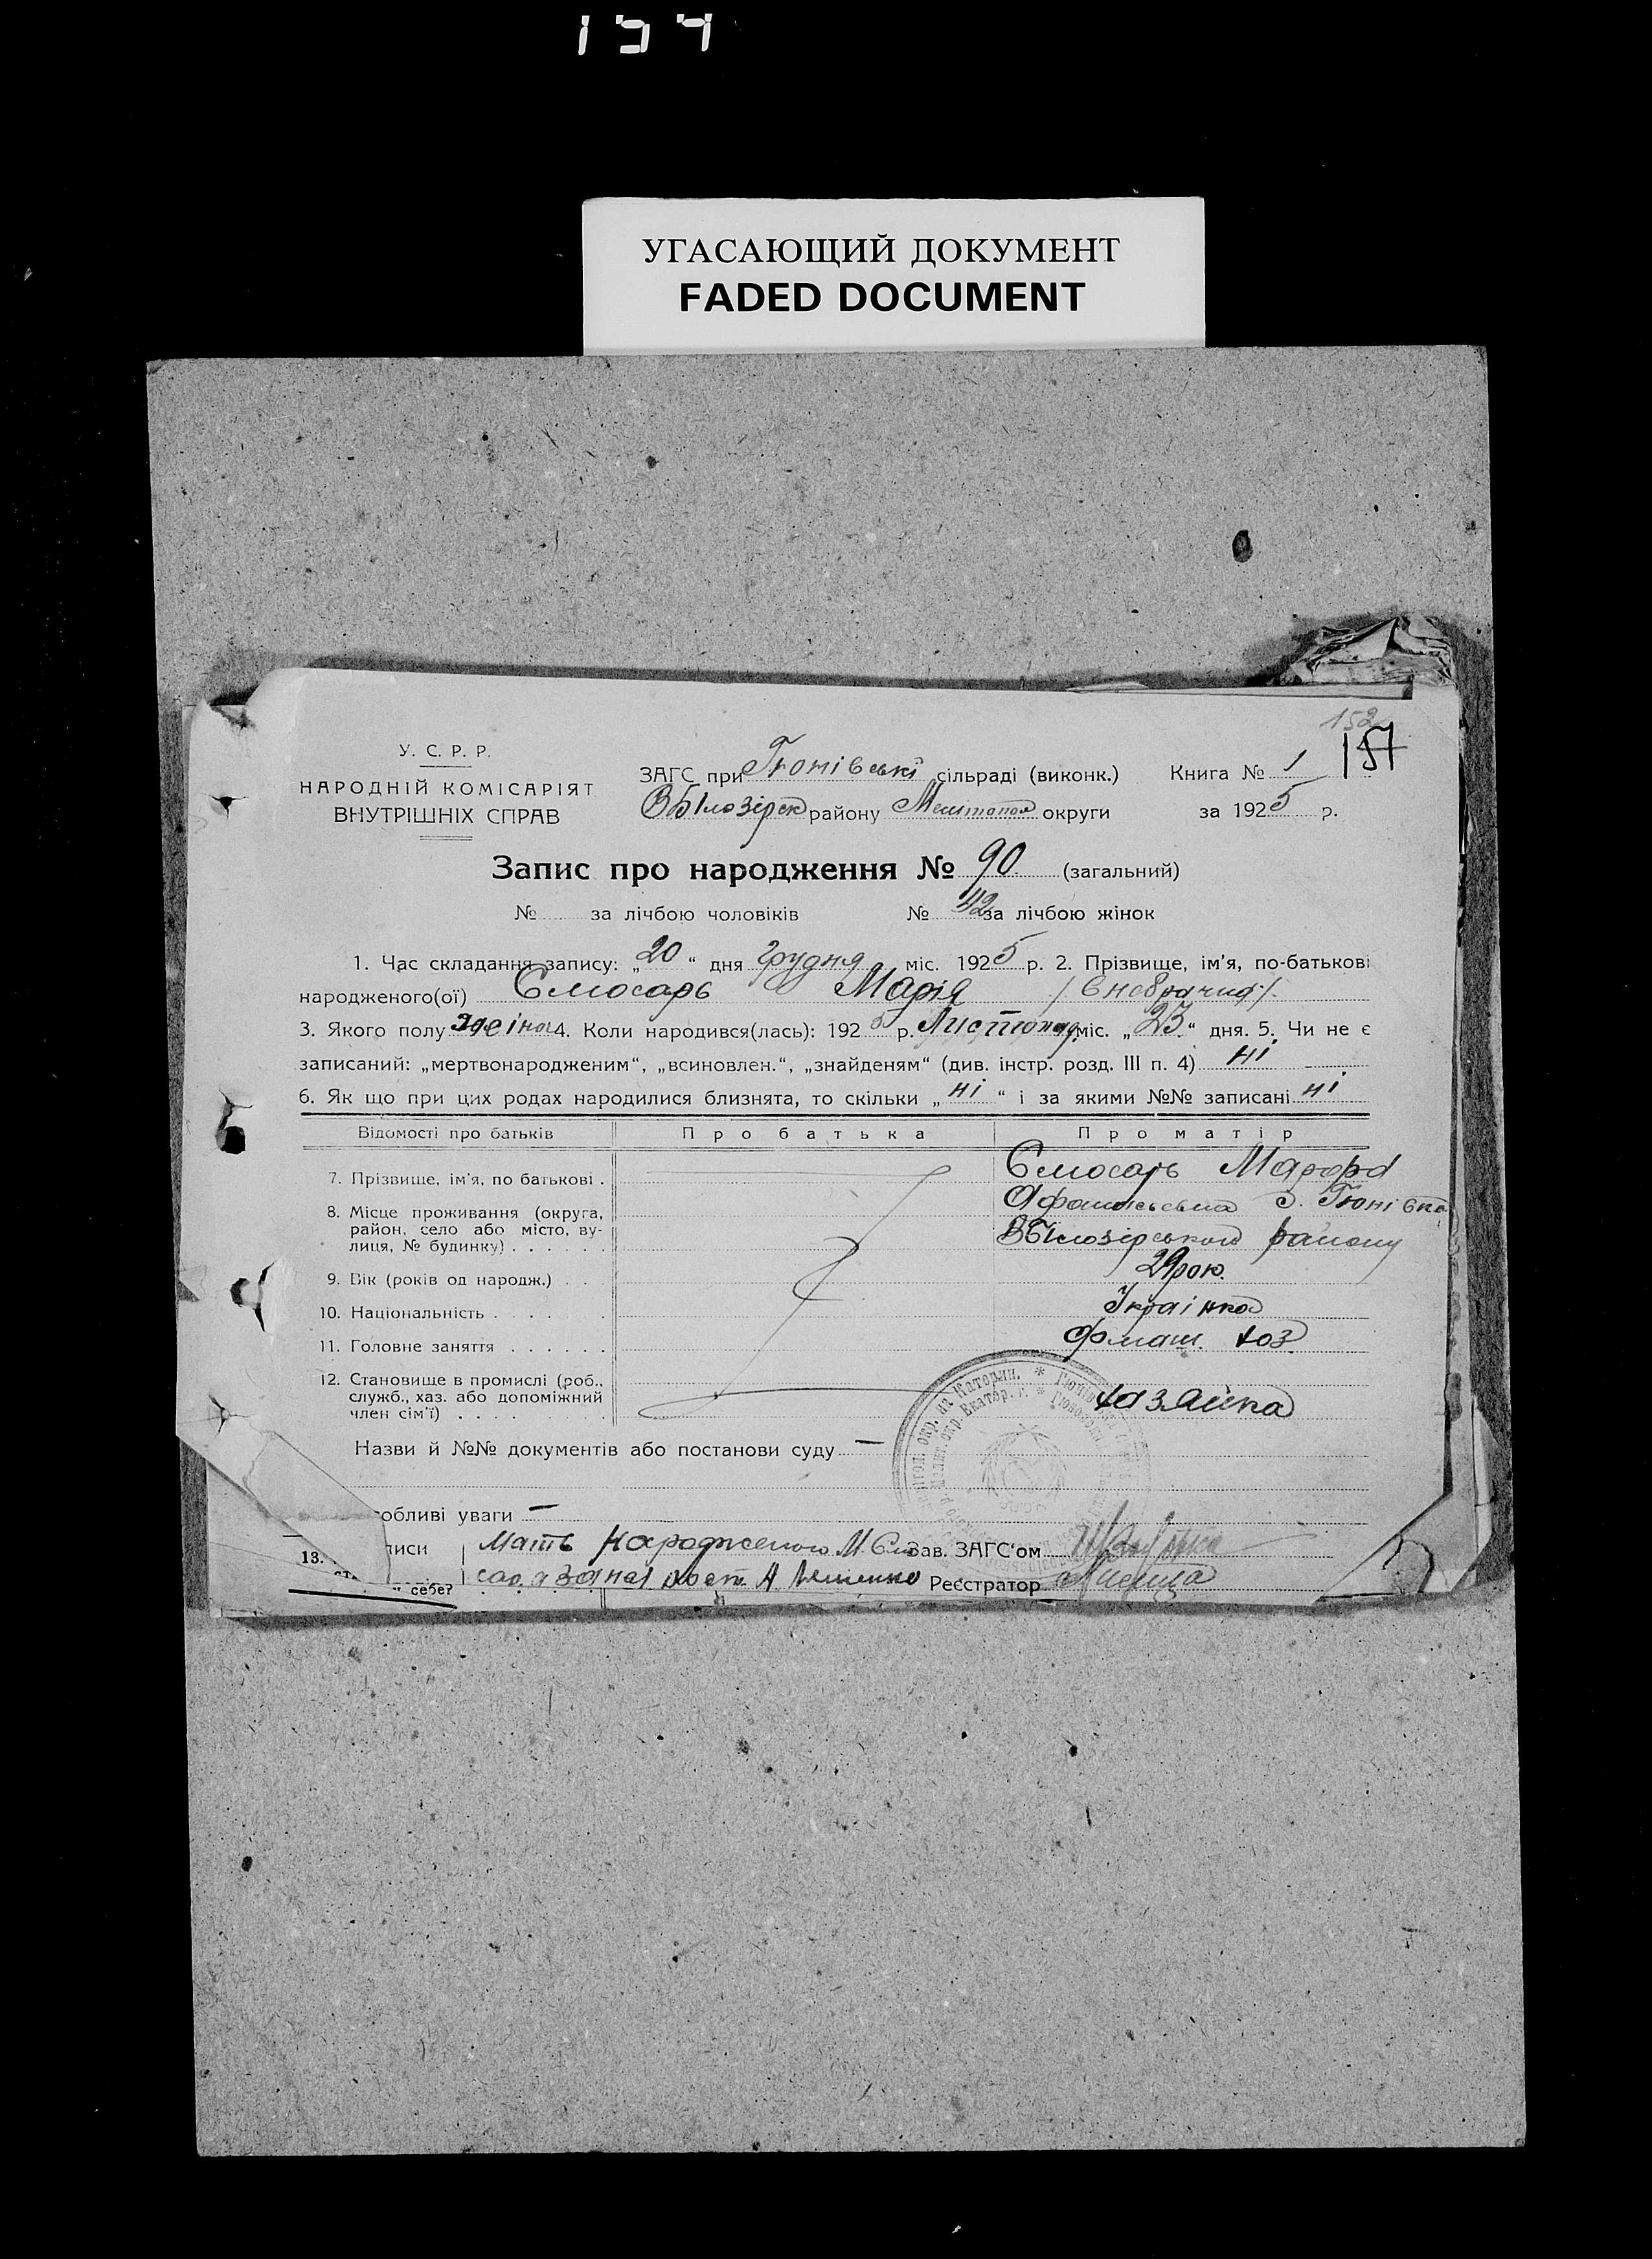 154
УГАСАЮЩИЙ ДОКУМЕНТ
FADED DOCUMENT
152
157
У. С. Р. Р.
НАРОДНІЙ КОМІСАРІЯТ
ВНУТРІШНІХ СПРАВ
ЗАГС при Гюнівські сільраді (виконк.) Книга № 1
ВБілозірск району Мелітопол округи за 1925 р.
Запис про народження № 90 (загальний)
№ за лічбою чоловіків № 42 за лічбою жінок
1. Час складання запису: „20“ дня грудня міс. 1925 р. 2. Прізвище, ім’я, по-батькові
народженого(ої) Слюсарь Марія
3. Якого полу жеіноі 4. Коли народився(лась): 1925 р. Листопад міс. „23“ дня. 5. Чи не є
записаний: „мертвонародженим“, „всиновлен.“, „знайденям“ (див. інстр. розд. III п. 4) ні
6. Як що при цих родах народилися близнята, то скільки „ні“ і за якими №№ записані ні
Відомості про батьків Про батька Про матір
7. Прізвище, ім’я, по батькові . Слюсарь Марфа
8. Місце проживання (округа, Афанасьевна с. Гюнівка
район, село або місто, ву-
лиця, № будинку) . . . . . . ВБілозірського району
9. Вік (років од народж.) . . 29 рок.
10. Національність . . . . . Украінка
11. Головне заняття . . . . . .
12. Становище в промислі (роб.,
служб., хаз. або допоміжний хазяйка
член сім’ї) . . . . . .
Назви й №№ документів або постанови суду —
обливі уваги —
13. писи Мать народженого М. Слю Зав. ЗАГС‘ом
и себе? Реєстратор